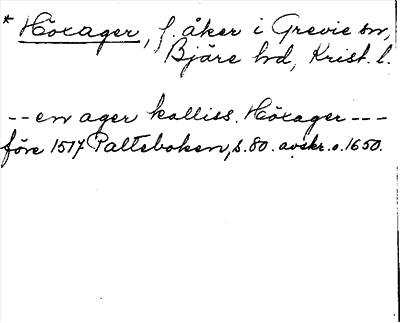 * Höxager, f. åker i Grevie sn,
Bjäre hd, Krist. l.
-- en ager kalliss. Höxager ---
före 1517 Palteboken, s. 80. avskr. o. 1650.